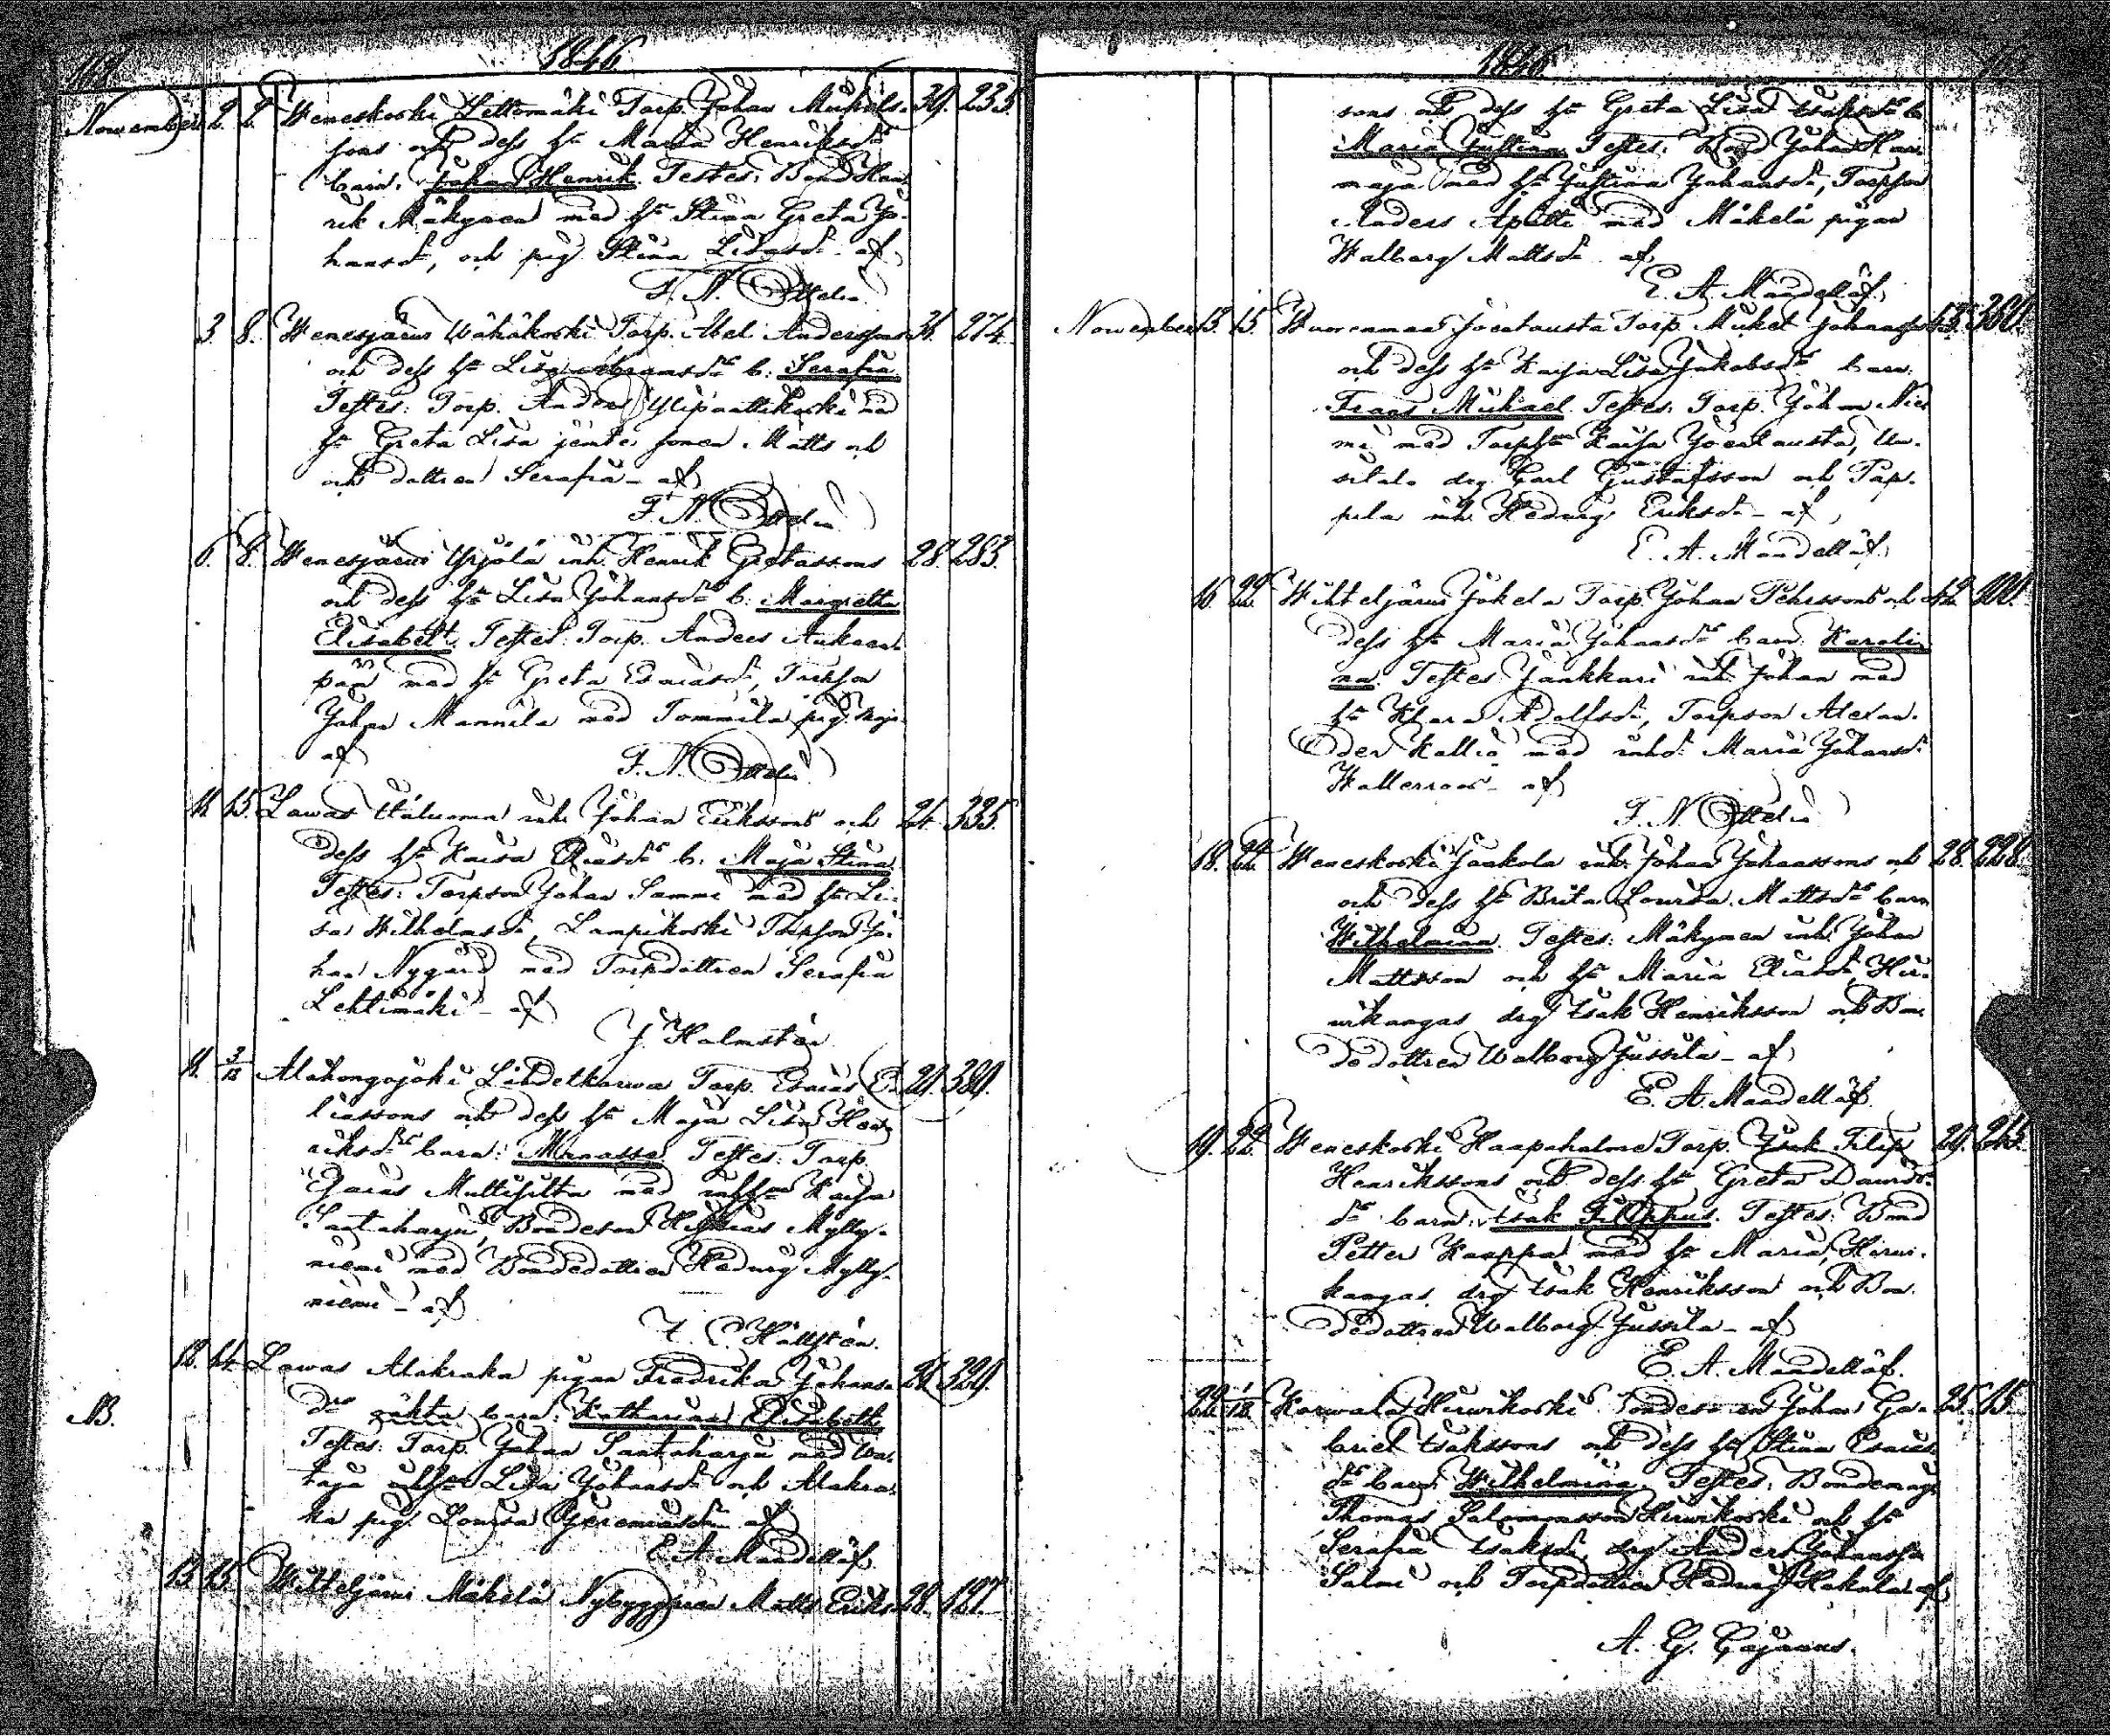 1846
November 2. 8. Weneskoski Lettomäki Torp. Johan Mickels- 39. 235.
sons och dess hu Maria Henriksdr
barn: Johan Henrik. Testes: Bond Hen-
rik Mäkynen med hu Stina Greta Jo-
hansdr, och pig. Stina Lisa af
3. 8. Wenesjärwi Wähäkoski Torp. Abel Anderssons 36. 274.
och dess hu Lisa Abramsdr b: Serafia
Testes: Torp. Anders Ylipaattikoski med
hu Greta Lisa jemte sonen Matts och
och dottren Serafia - af
6. 8. Wenesjärwi Yrjölä inh. Henrik Gretassons 28. 283.
och dess hu Lisa Johansdr b: Margretha
Elisabeth. Testes: Torp. Anders Ankeen-
pää med hu Greta Esaiasdr, Torpson
Johan Mannila med Tommila pig. Kajs
af
11. 15. Lawas inh. Johan Erikssons och 24. 335.
dess hu Kaisa Eliasdr b: Maja Stina
Testes: Torpson Johan Sammi med hu Li-
sa Wilhelmsdr, Lampikoski Torpson Jo-
han Nygård med Torpdottren Serafia
Lehtimäki - af
J. Holmstén
11. 3/12 Alahongojoki Lähdetkorwa Torp. Esaias E- 20. 380.
liassons och dess hu Maja Lisa Hen-
riksdr barn: Manasse. Testes: Torp.
Esaias Multisilta med inhhu Kaisa
Santaharju, Bondeson Hiskias Mylly-
niemi med Bondedottren Hedwig Mylly-
niemi - af
Hällstén.
12. 14. Lawas Alakraka pigan Fredrika Johans- 24. 329.
NB. dr oäkta barn: Katharina Elisabeth
Testes: Torp. Johan Santaharju med Wa-
taja inhhu Lisa Johansdr och Alakra-
ka pig. Lowisa Jeremiasdr af
E. A. Mandellöf.
13. 15. Wihteljärwi Mäkelä Nybyggaren Matts Eriks- 28. 197.
1846.
sons och dess hu Greta Lisa Isaksdr b
Maria Justina Testes: Bond Johan Har-
maja med hu Justina Johansdr, Torpson
Anders Apatti med Mäkelä pigan
Walborg Mattsdr af
E. A. Mandellöf.
November 13. 15. Wuorenmaa Jocatausta Torp. Mickel Johanss 43. 360.
och dess hu Kajsa Lisa Jakobsdr barn:
Frans Michael. Testes: Torp. Johan Nie-
mi med Torphu Kaisa Jocatausta, Uu-
sitalo drg Carl Gustafsson och Pap-
pila inh. Hedwig Eriksdr - af
E. A. Mandellöf.
16. 22. Wihteljärwi Jokela Torp. Johan Pehrssons och 42. 200.
dess hu Maria Johansdr barn: Karoli-
na. Testes: Jankkari inh. Johan med
hu Klara Adolfsdr, Torpson Alexan-
der Kallio med inhd. Maria Johansdr
Wallenroos - af
18. 22. Weneskoski Jaakola inh. Johan Johanssons och 28. 228.
och dess hu Brita Lowisa Mattsdr barn
Wilhelmina. Testes: Mäkynen inh. Johan
Mattsson och hu Maria Eliasdr, Hir-
wikangas drg Isak Henriksson och Bon-
dedottren Walborg Jussila - af
E. A. Mandellöf.
19. 22. Weneskoski Haapaholma Torp. Isak Filip 29. 215.
Henrikssons och dess hu Greta Davids-
dr barn: Isak Filippus. Testes: Bond
Petter Kaappa med hu Maria, Hirwi-
kangas drg Isak Henriksson och Bon-
dedottren Walborg Jussila - af
E. A. Mandellöf.
22. 1/12 Karwala Hirwikoski Bondesonen Johan Ga- 25. 15.
briel Isakssons och dess hu Stina Esaias-
dr barn: Wilhelmina. Testes: Bondemåg
Thomas Salomonsson Hirwikoski och hu
Serafia Isaksdr, drg Anders Johansson
Salmi och Torpdottren Hedwig Hakala af